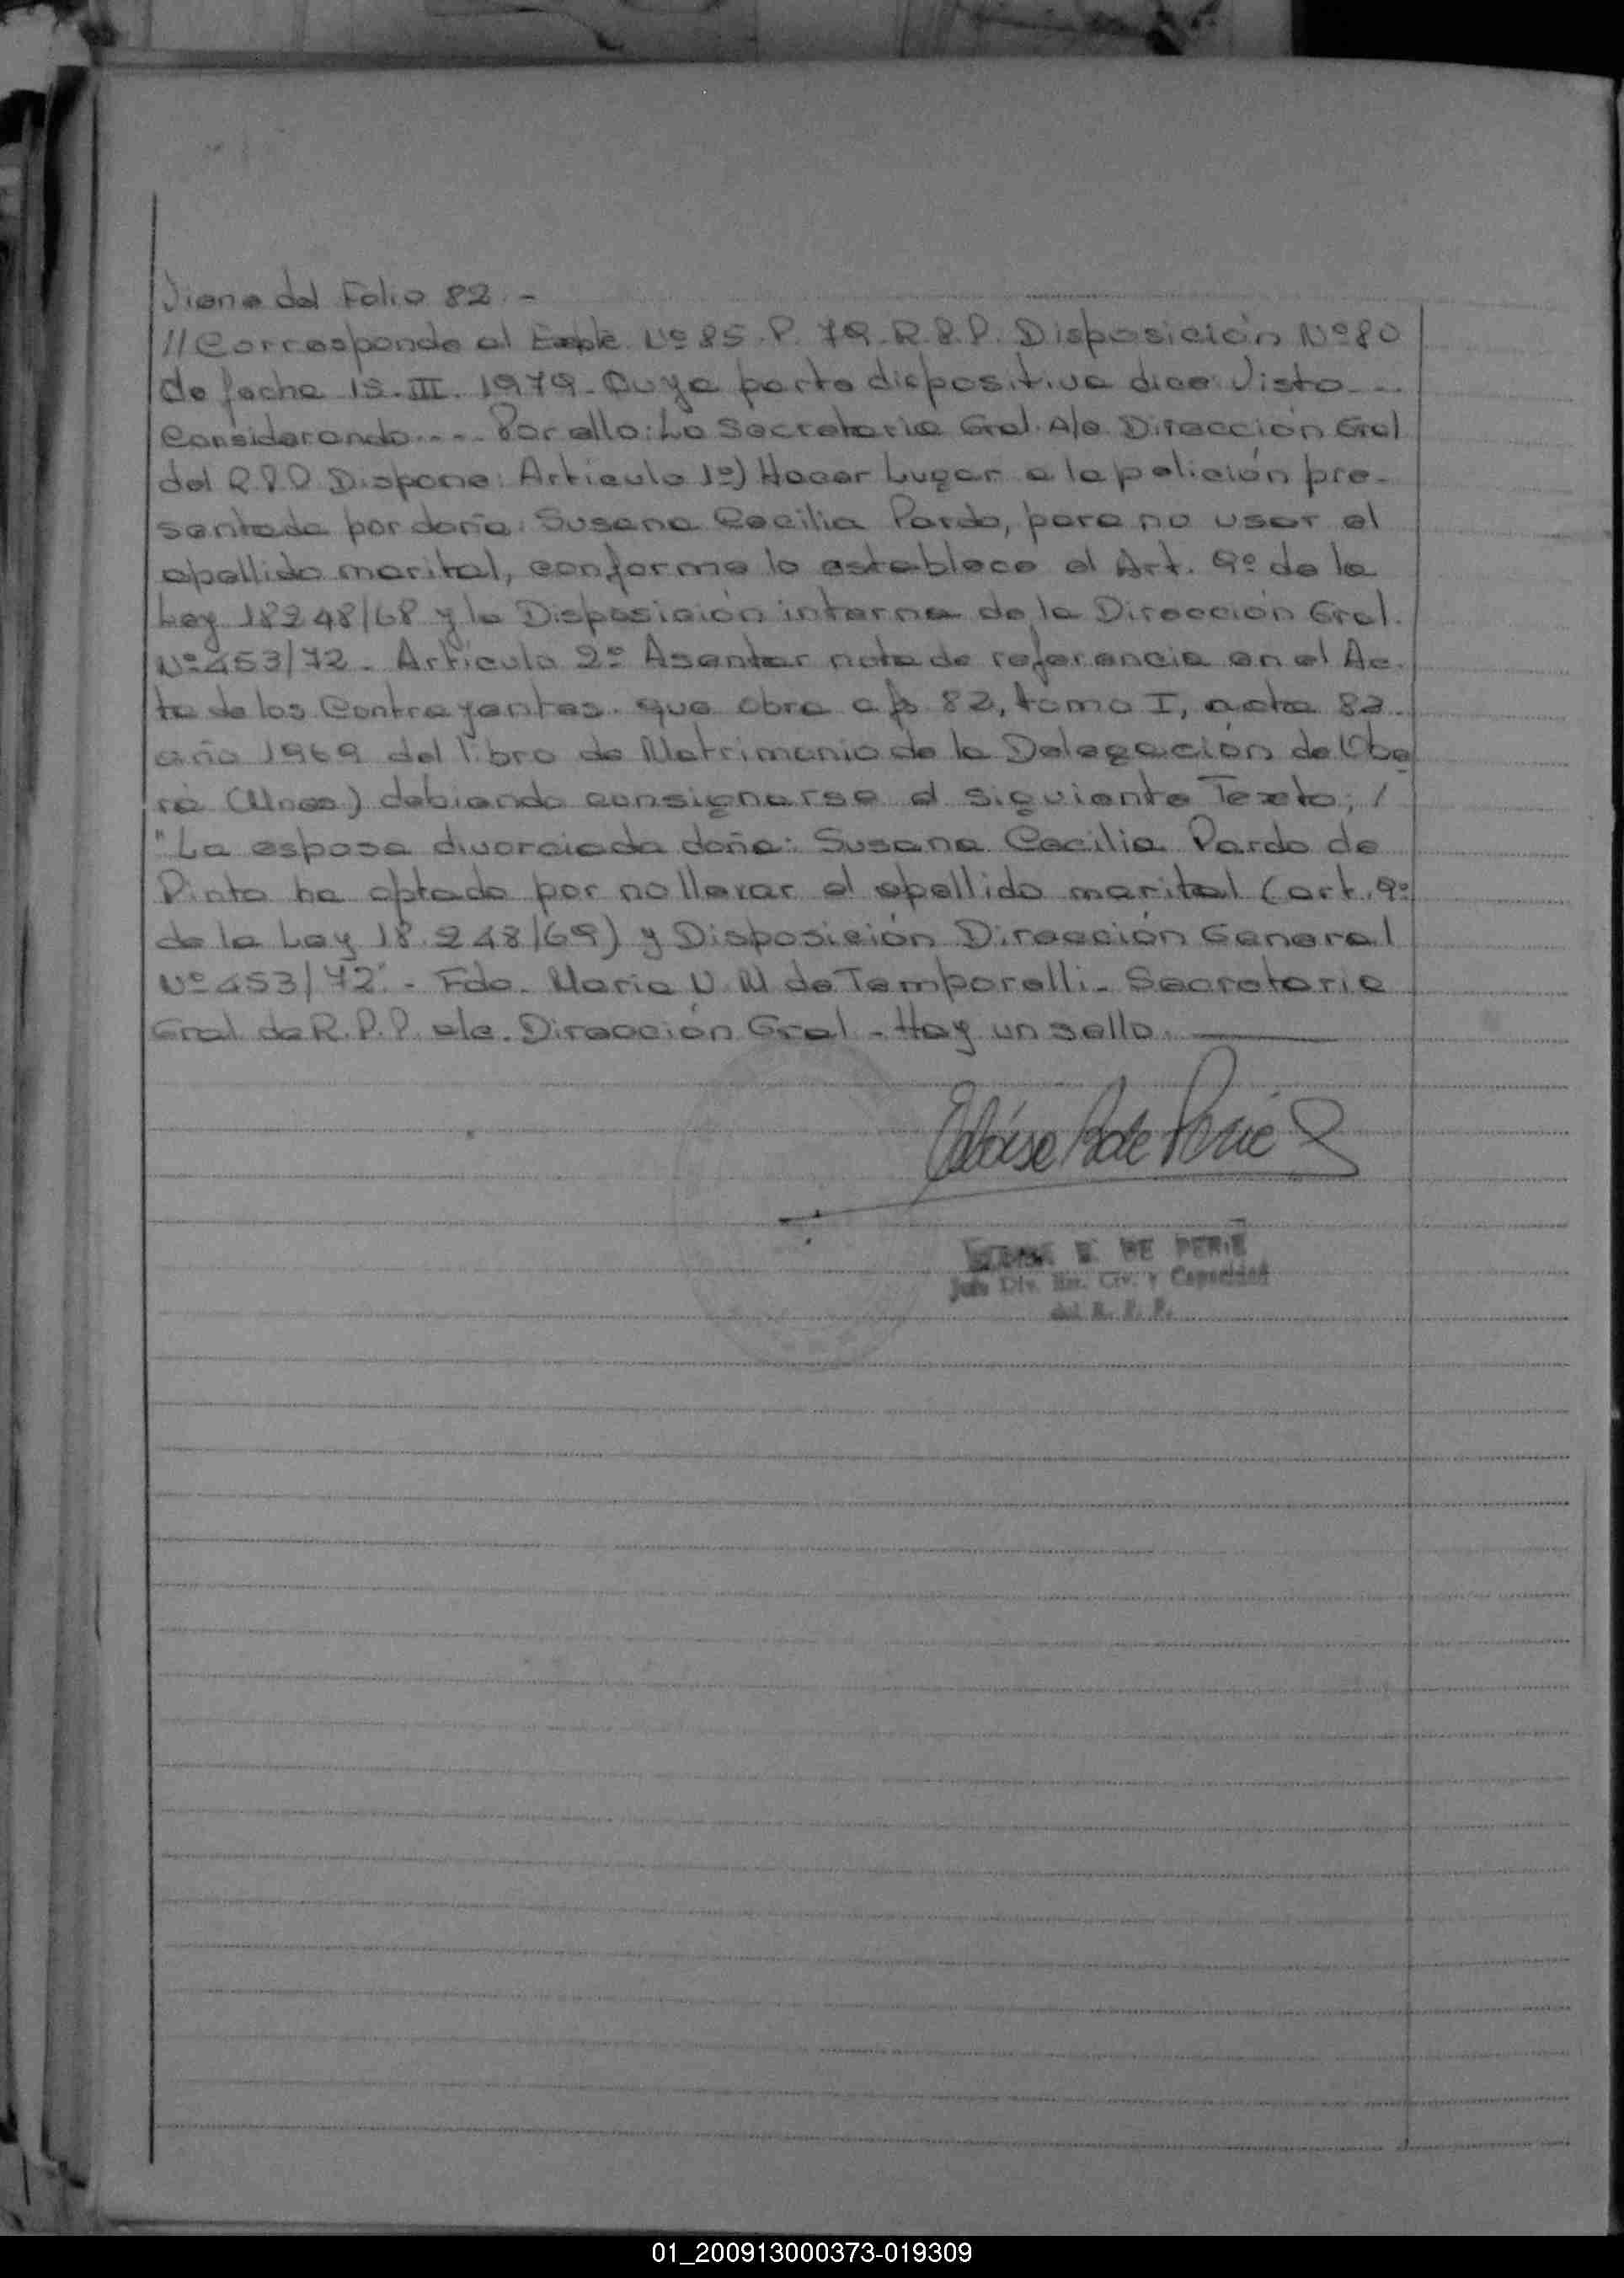 Viene del Folio 82.-
//Corresponde al Expte. Nº 85.P. 79. R.P.P. Disposición Nº 80
de fecha 15.III.1979. Cuya parte dispositiva dice: Visto...
Considerando.... Por ello: La Secretaria Gral. A/c Dirección Gral
del R.P.P. Dispone: Articulo 1º) Hacer Lugar a la petición pre-
sentada por doña: Susana Cecilia Pardo, para no usar el
apellido marital, conforme lo establece el Art. 9º de la
Ley 18248/68 y la Disposición interna de la Dirección Gral.
Nº 453/72. Articulo 2º Asentar nota de referencia en el Ac-
ta de los Contrayentes. que obra a fs 82, tomo I, acta 82.
año 1969 del libro de Matrimonio de la Delegación de Obe-
rá (Mnes) debiendo consignarse el siguiente Texto; /
"La esposa divorciada doña: Susana Cecilia Pardo de
Pinto ha optado por no llevar el apellido marital (art. 9º
de la Ley 18.248/69) y Disposición Dirección General
Nº 453/72". - Fdo. Maria V. M de Temporelli. Secretaria
Gral de R.P.P. a/c. Dirección Gral - Hay un sello.
DE PERIE
Jefe Div. Est. Civ. y Capacidad
del R. P. P.
01_200913000373-019309